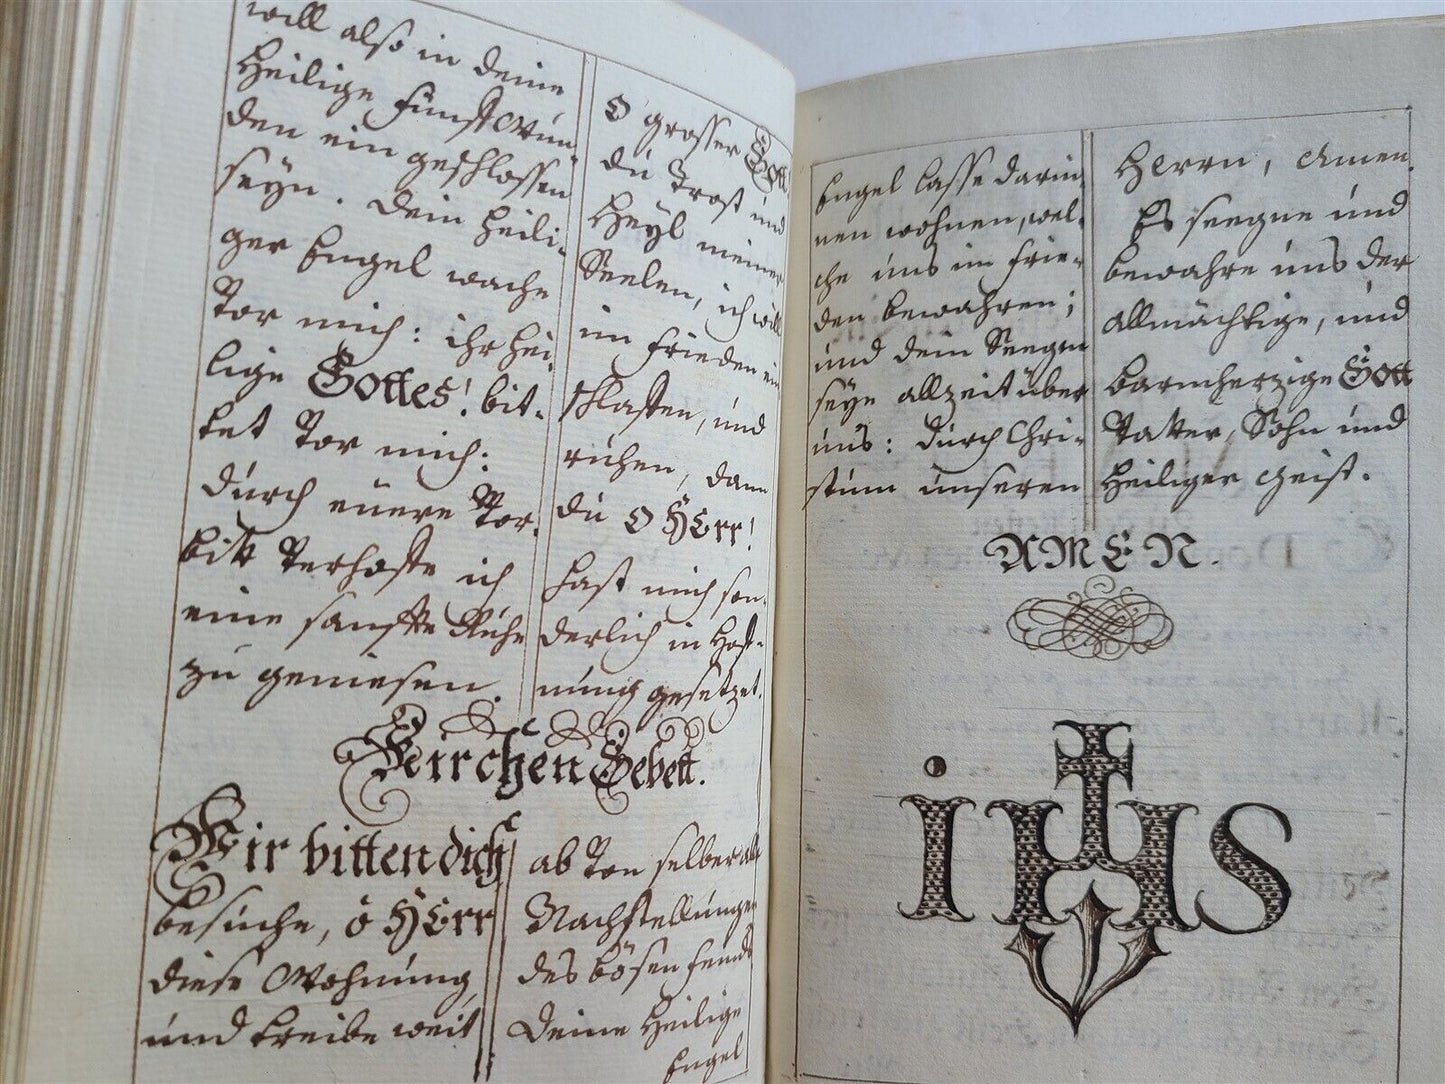 will also in deine
Heilige fünff Wun-
den ein geschlossen
seyn. Dein heili-
ger Engel wache
vor mich: ihr hei-
lige Gottes! bit-
tet vor mich:
durch eüere vor-
bitt verhoffe ich
eine sanffte Ruhe
zu geniesen.
O grosser Gott
du Trost und
Heyl meiner
Seelen, ich will
im frieden ein
schlaffen, und
ruhen, dann
du O HErr!
hast mich son-
derlich in Hoff-
nung gesetzet.
Gebett.
Wir bitten dich
besuche, ò HErr
diese Wohnung
und treibe weit
ab von selber alle
Nachstellungen
des bösen feinds
Deine Heilige
Engel
Engel lasse darin-
nen wohnen, wel-
che uns im frie-
den bewahren;
und dein Seegen
seye allzeit über
uns: durch Chri-
stum unseren
HErrn, Amen.
Es seegne und
bewahre uns der
allmächtige, und
barmhertzige Gott
Vatter, Sohn und
Heiliger Geist.
AMEN.
iHS